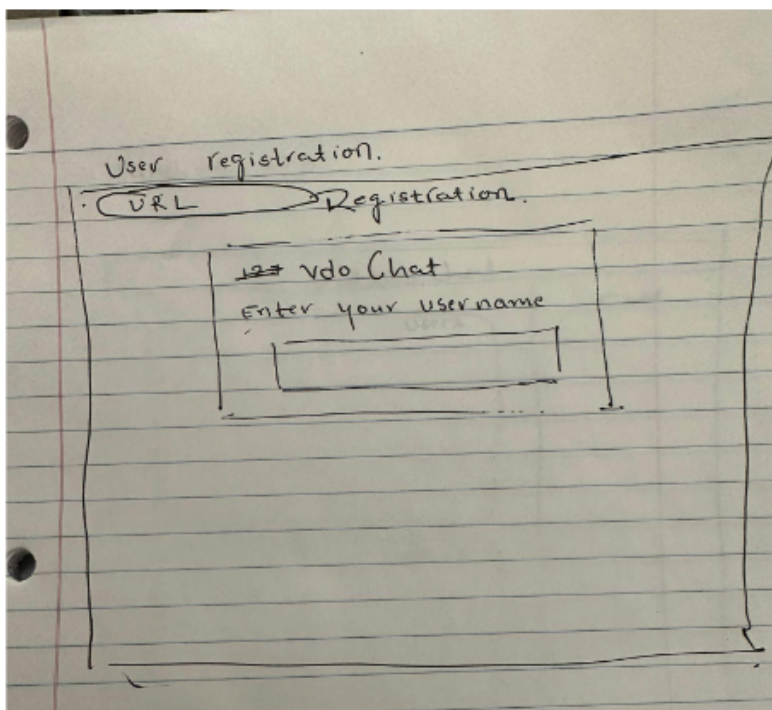 User registration.
URL Registration.
vdo Chat
Enter your username